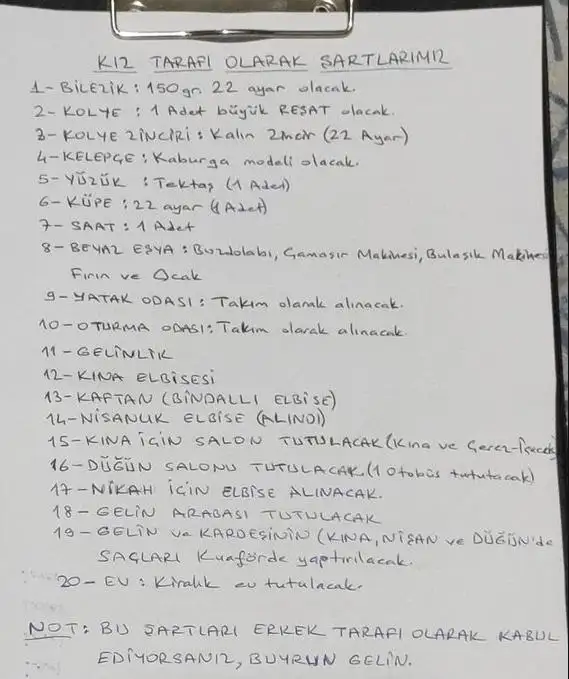 KIZ TARAFI OLARAK ŞARTLARIMIZ
1- BİLEZİK : 150 gr. 22 ayar olacak.
2- KOLYE : 1 Adet büyük REŞAT olacak.
3- KOLYE ZİNCİRİ : Kalın Zincir (22 Ayar)
4- KELEPÇE : Kaburga modeli olacak.
5- YÜZÜK : Tektaş (1 Adet)
6- KÜPE : 22 ayar (1 Adet)
7- SAAT : 1 Adet
8- BEYAZ EŞYA : Buzdolabı, Çamaşır Makinesi, Bulaşık Makinesi
Fırın ve Ocak
9- YATAK ODASI : Takım olarak alınacak.
10- OTURMA ODASI : Takım olarak alınacak
11- GELİNLİK
12- KINA ELBİSESİ
13- KAFTAN (BİNDALLI ELBİSE)
14- NİŞANLIK ELBİSE (ALINDI)
15- KINA İÇİN SALON TUTULACAK (Kına ve Çerez-İçecek)
16- DÜĞÜN SALONU TUTULACAK (1 Otobüs tutulacak)
17- NİKAH İÇİN ELBİSE ALINACAK.
18- GELİN ARABASI TUTULACAK
19- GELİN ve KARDEŞİNİN (KINA, NİŞAN ve DÜĞÜN'de
SAÇLARI Kuaförde yaptırılacak.
20- EV : Kiralık ev tutulacak.
NOT: BU ŞARTLARI ERKEK TARAFI OLARAK KABUL
EDİYORSANIZ, BUYRUN GELİN.